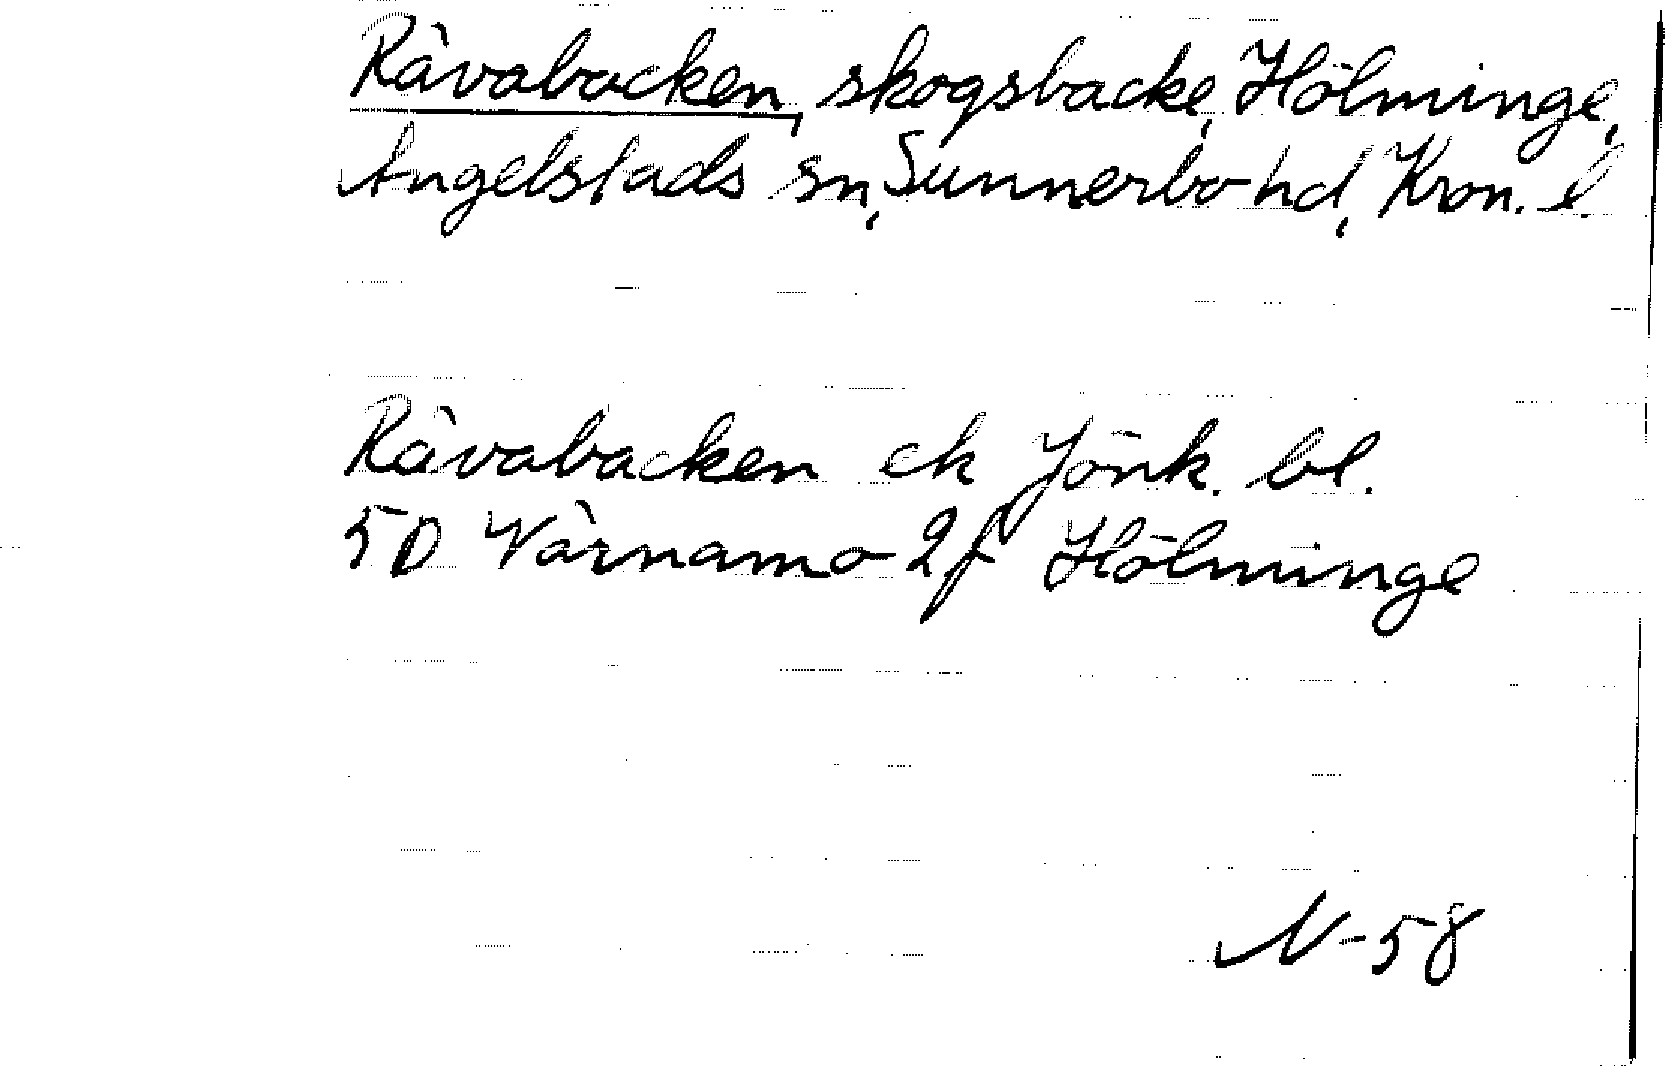 Rävabacken, skogsbacke, Hölminge,
Angelstads sn, Sunnerbo hd, Kron. l.
Rävabacken ek Jönk. bl.
5D Värnamo 2f Hölminge
N-58